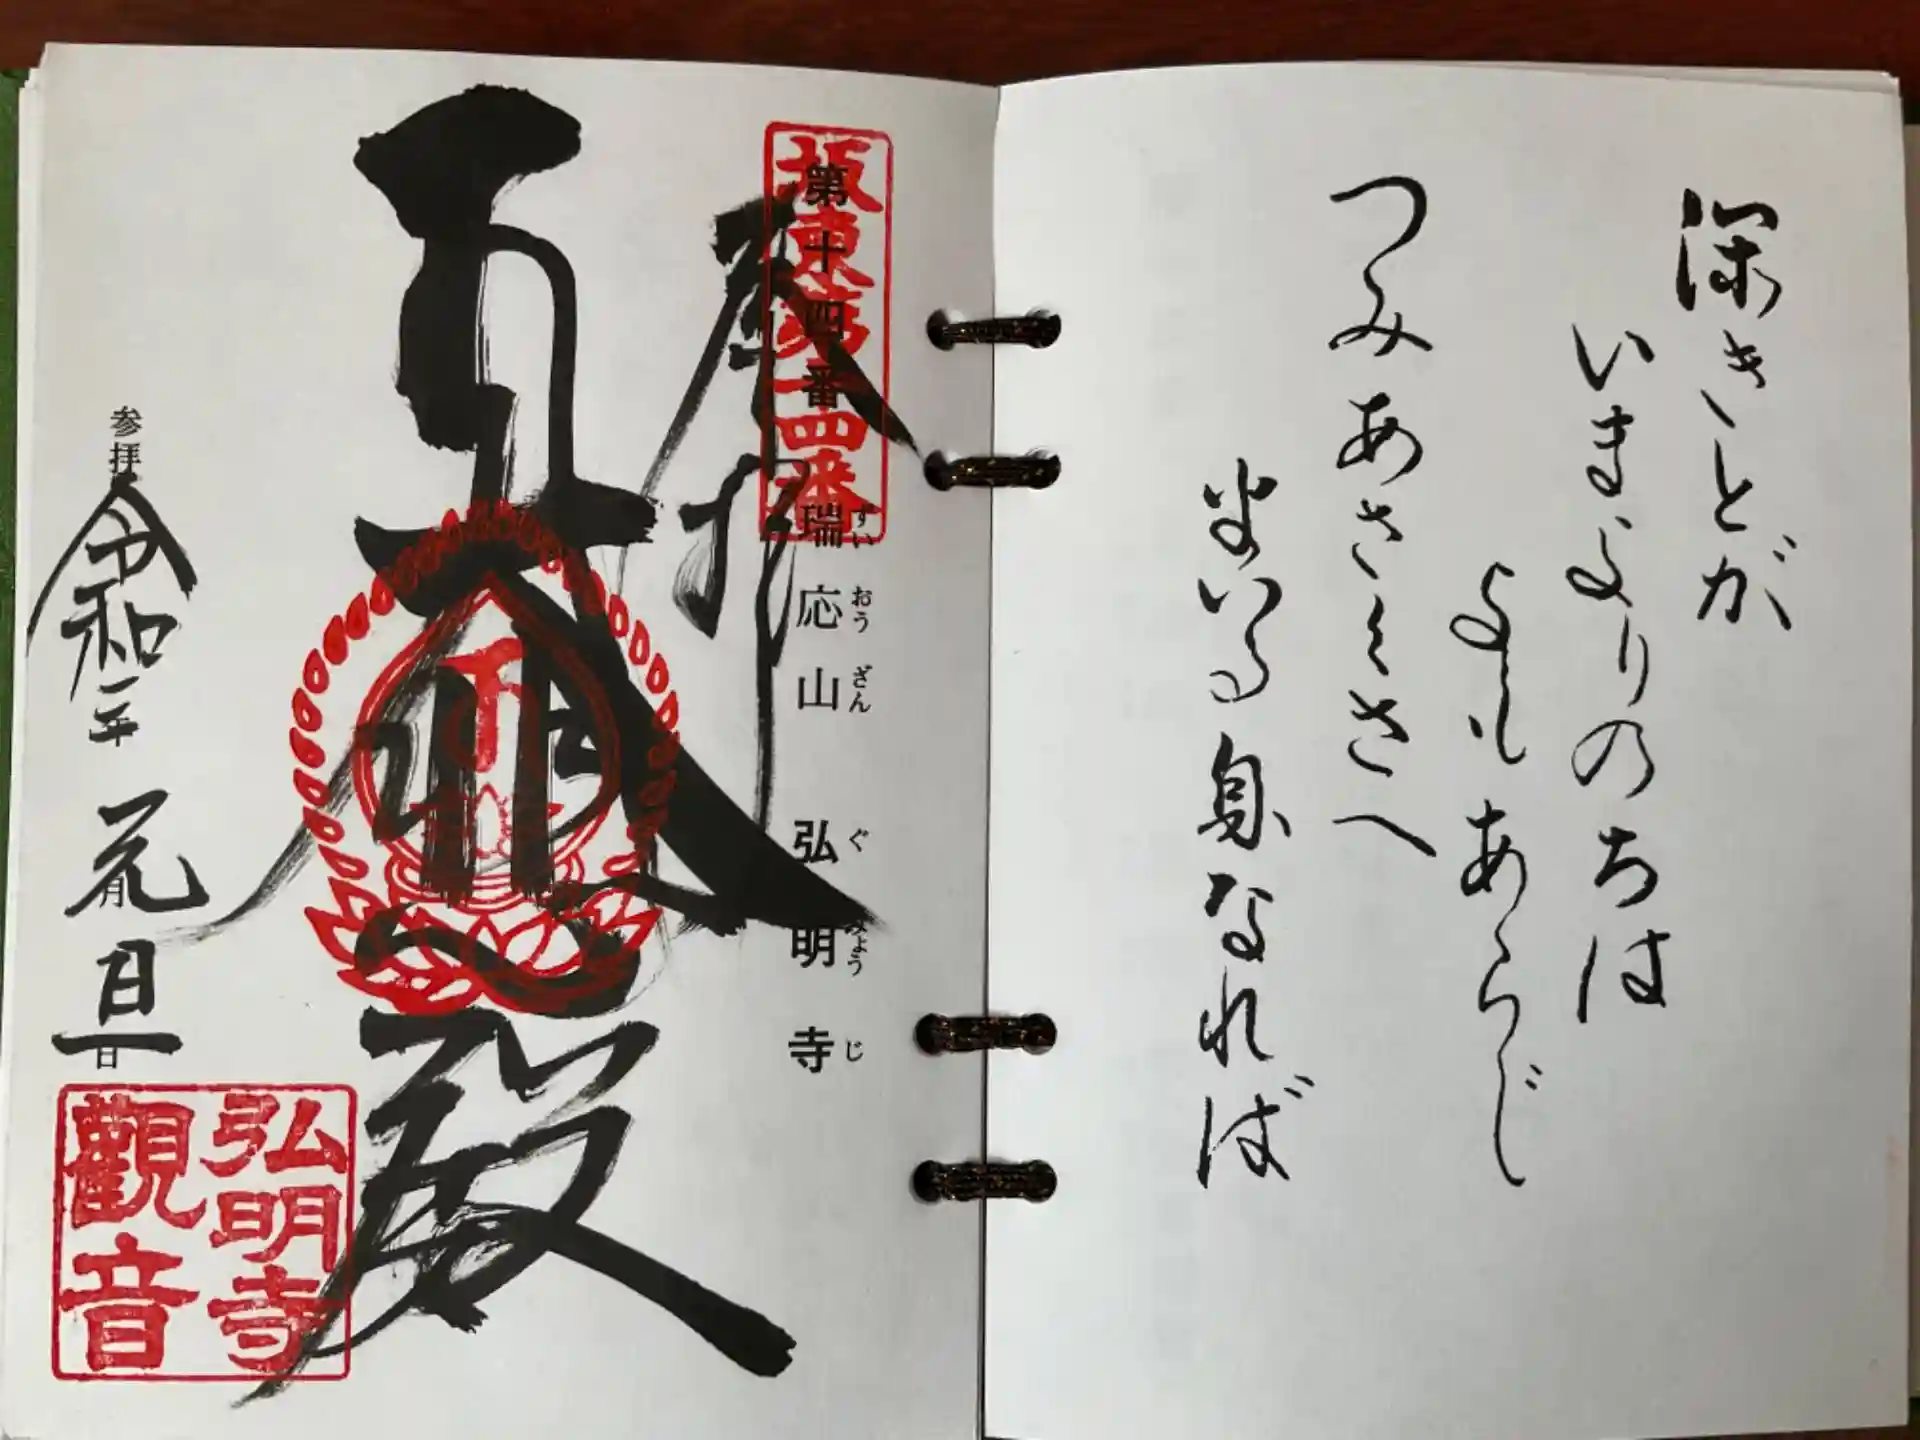 深きとが
いまよりのちは
よもあらじ
つみあさくさへ
まいる身なれば
坂東第十四番
第十四番 瑞応山 弘明寺
ずいおうざん ぐみょうじ
奉拝
大悲殿
参拝 令和二年 元旦
月 日
弘明寺
觀音